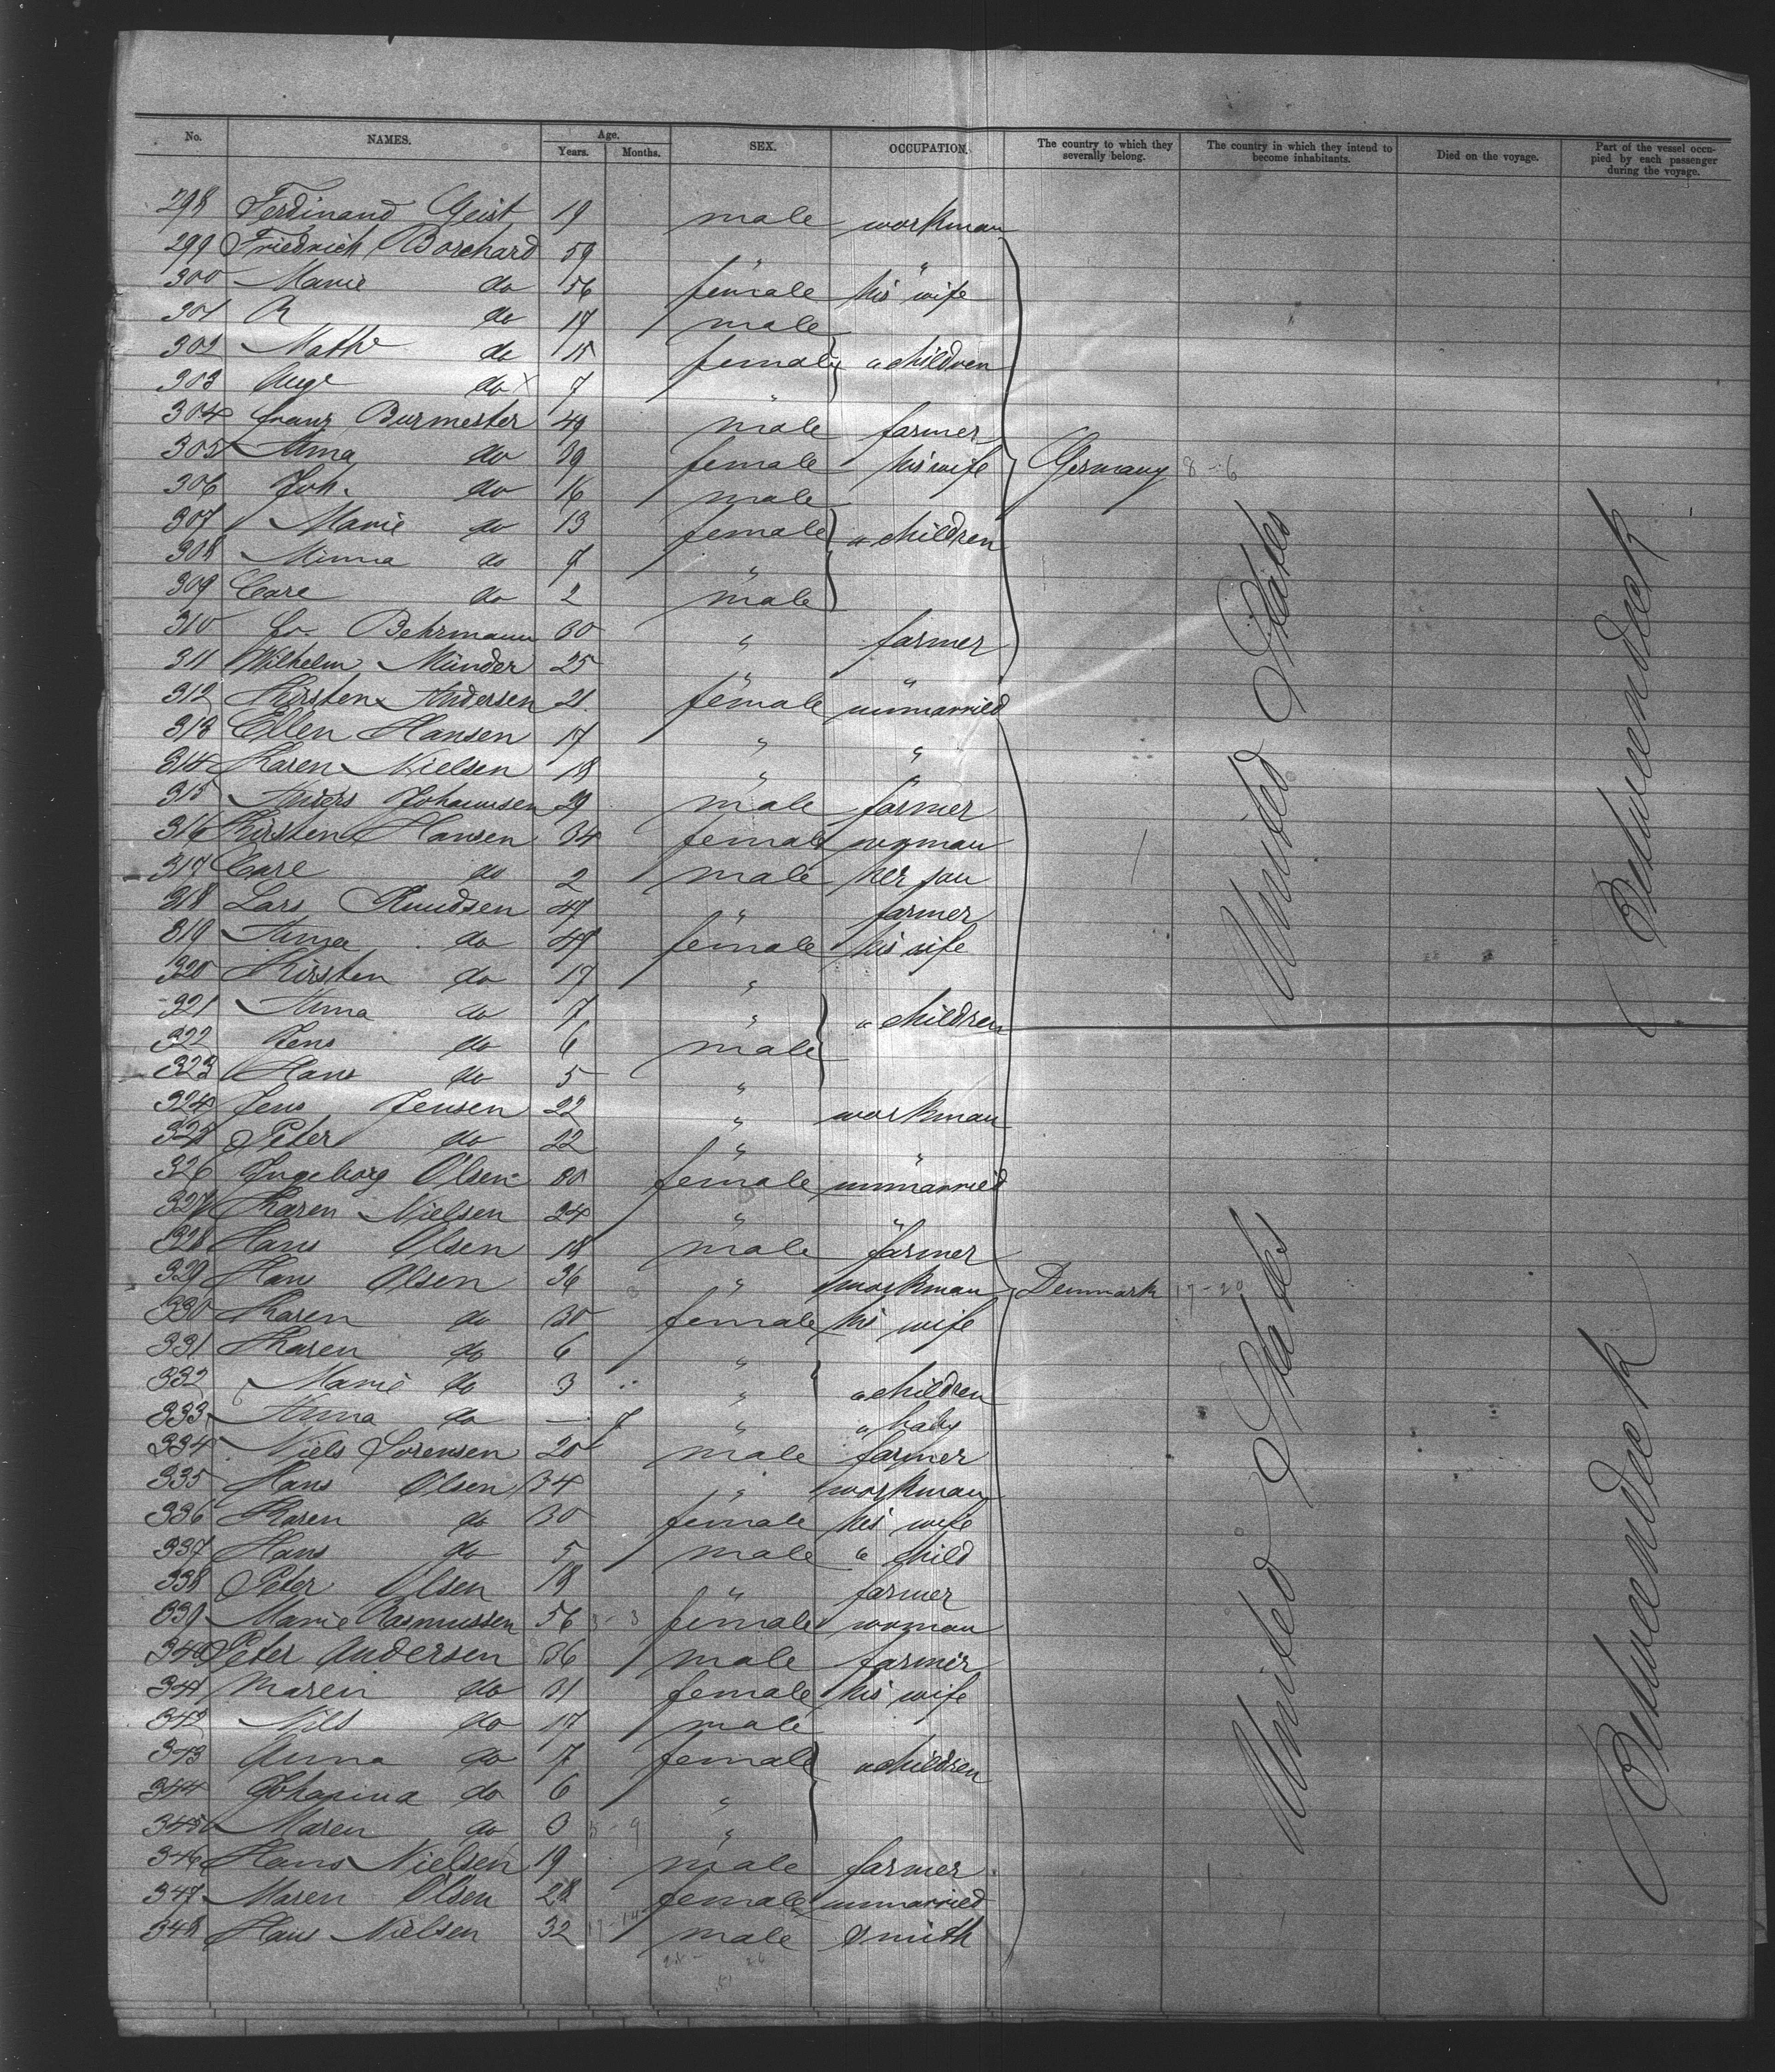 No. NAMES. Age. Years. Months. SEX. OCCUPATION. The country to which they severally belong. The country in which they intend to become inhabitants. Died on the voyage. Part of the vessel occupied by each passenger during the voyage.
298 Ferdinand Geist 19 male workman
299 Friedrich Borchard 59 " "
300 Marie do 56 female his wife
301 R do 17 male
302 Math do 15 female " children
303 Aug do 7
304 Franz Burmester 49 male farmer
305 Anna do 39 female his wife Germany 8-6
306 Joh. do 16 male
307 Marie do 13 female " children
308 Minna do 7 "
309 Carl do 2 male
310 Fr. Behrmann 30 " farmer
311 Wilhelm Münder 25 " "
312 Kirsten Andersen 21 female unmarried
313 Ellen Hansen 17 " "
314 Karen Nielsen 18 " "
315 Anders Johannsen 29 male farmer
316 Kirsten Hansen 34 female woman
317 Carl do 2 male her son
318 Lars Knudsen 47 " farmer
319 Anna do 48 female his wife
320 Kirsten do 17 "
321 Anna do 7 " " children
322 Jens do 6 male
323 Hans do 5 "
324 Jens Jensen 22 " workman
325 Peter do 22 " "
326 Ingeborg Olsen 20 female unmarried
327 Karen Nielsen 24 " "
328 Hans Olsen 18 male farmer
329 Hans Olsen 36 " workman Denmark 17-20
330 Karen do 30 female his wife
331 Karen do 6 "
332 Marie do 3 " " children
333 Anna do — 7 " " baby
334 Niels Sorensen 20 male farmer
335 Hans Olsen 34 " workman
336 Karen do 30 female his wife
337 Hans do 5 male " child
338 Peter Olsen 18 " farmer
339 Marie Rasmussen 56 female woman
340 Peter Andersen 36 male farmer
341 Maren do 31 female his wife
342 Nils do 17 male
343 Anna do 7 female " children
344 Johanna do 6 "
345 Maren do 3 "
346 Hans Nielsen 19 male farmer
347 Maren Olsen 28 female unmarried
348 Hans Nielsen 32 male Smith
United States
Betweendeck
United States
Betweendeck